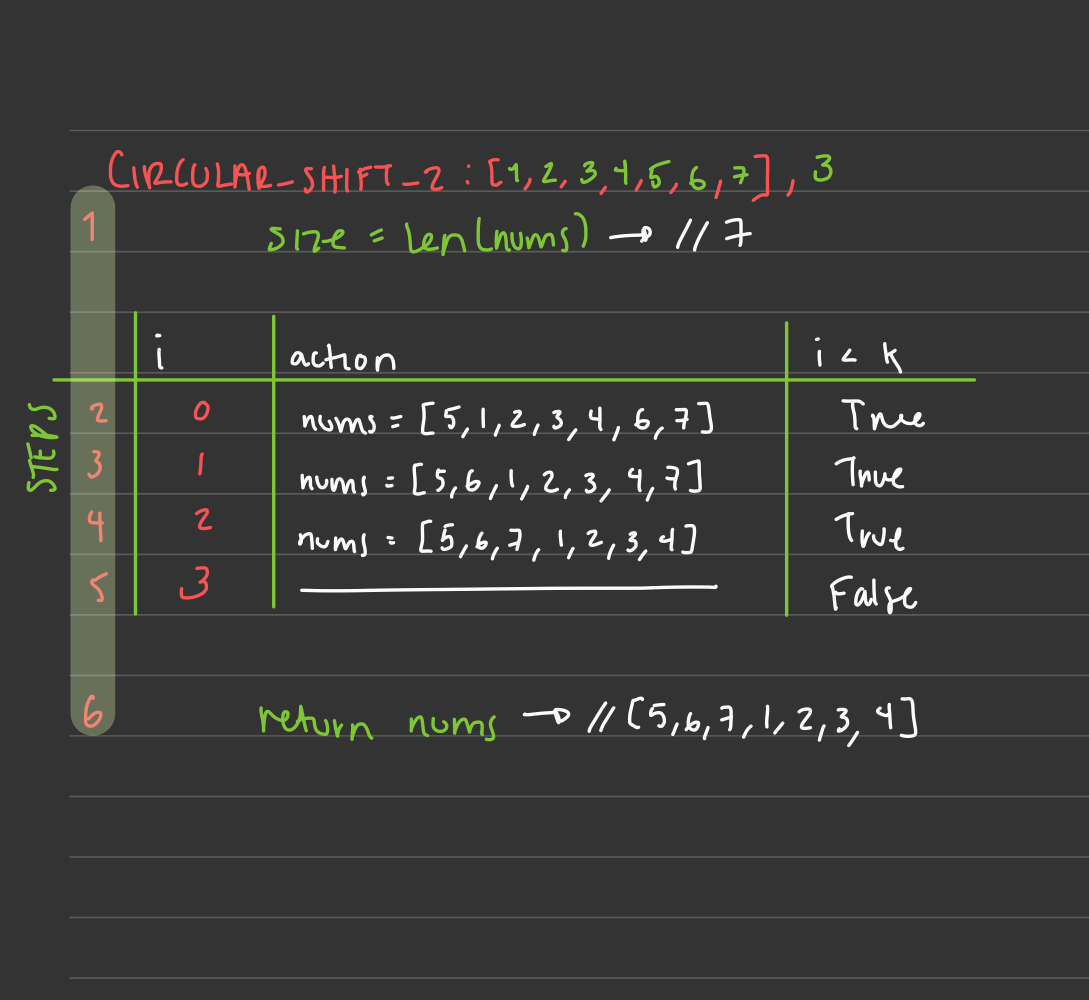 CIRCULAR_SHIFT_2 : [1,2,3,4,5,6,7], 3
1 size = len(nums) → // 7
i action i < k
STEPS
2 0 nums = [5,1,2,3,4,6,7] True
3 1 nums = [5,6,1,2,3,4,7] True
4 2 nums = [5,6,7,1,2,3,4] True
5 3 False
6 return nums → // [5,6,7,1,2,3,4]